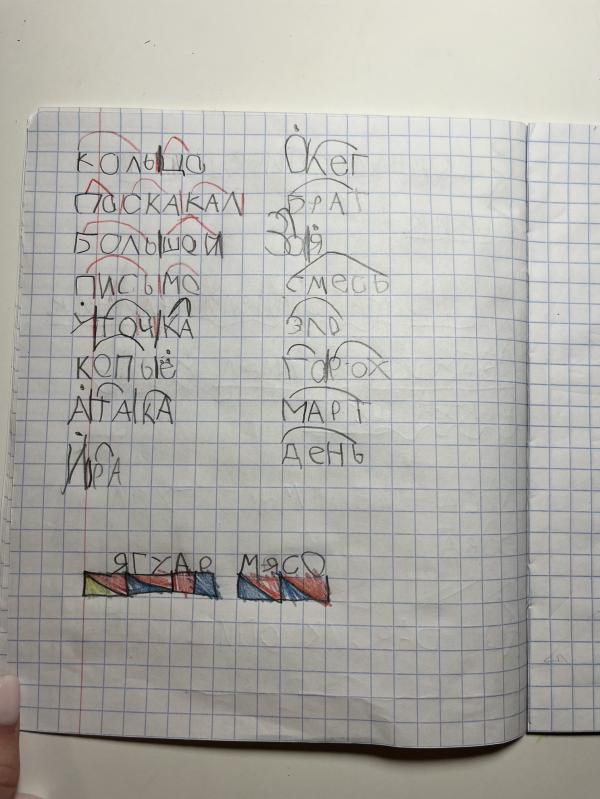 КОЛЬЦО
ПОСКАКАЛ
БОЛЬШОЙ
ПИСЬМО
УТОЧКА
КОПЬЁ
АТАКА
ИРА
ОКЕГ
БРАТ
ЗОЯ
СМЕСЬ
ЗЛО
ГОРОХ
МАРТ
ДЕНЬ
ЯГУАР МЯСО